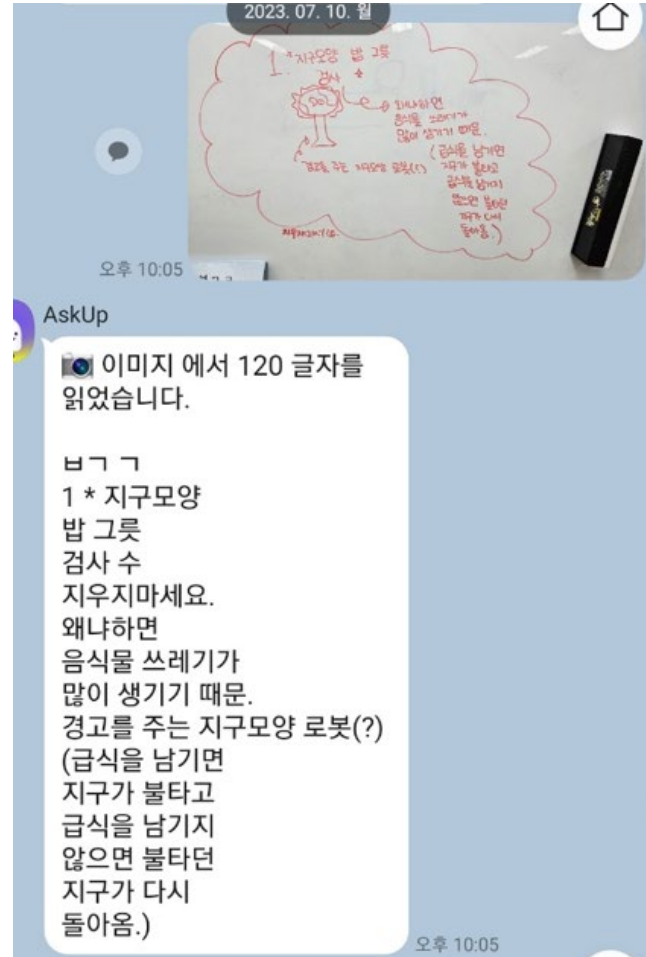 2023. 07. 10. 월
1 *지구모양 밥 그릇
검사 *
왜냐하면
음식물 쓰레기가
많이 생기기 때문.
(급식을 남기면
지구가 불타고
급식을 남기지
않으면 불타던
지구가 다시
돌아옴.)
경고를 주는 지구모양 로봇(?)
지우지마시오.
오후 10:05
AskUp
📷 이미지 에서 120 글자를
읽었습니다.
ㅂㄱ ㄱ
1 * 지구모양
밥 그릇
검사 수
지우지마세요.
왜냐하면
음식물 쓰레기가
많이 생기기 때문.
경고를 주는 지구모양 로봇(?)
(급식을 남기면
지구가 불타고
급식을 남기지
않으면 불타던
지구가 다시
돌아옴.)
오후 10:05